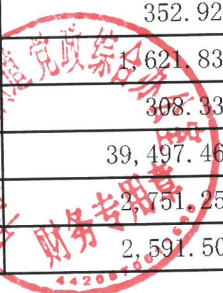 352.92
1,621.83
308.33
39,497.46
2,751.25
2,591.50
党政综合办
财务专用章